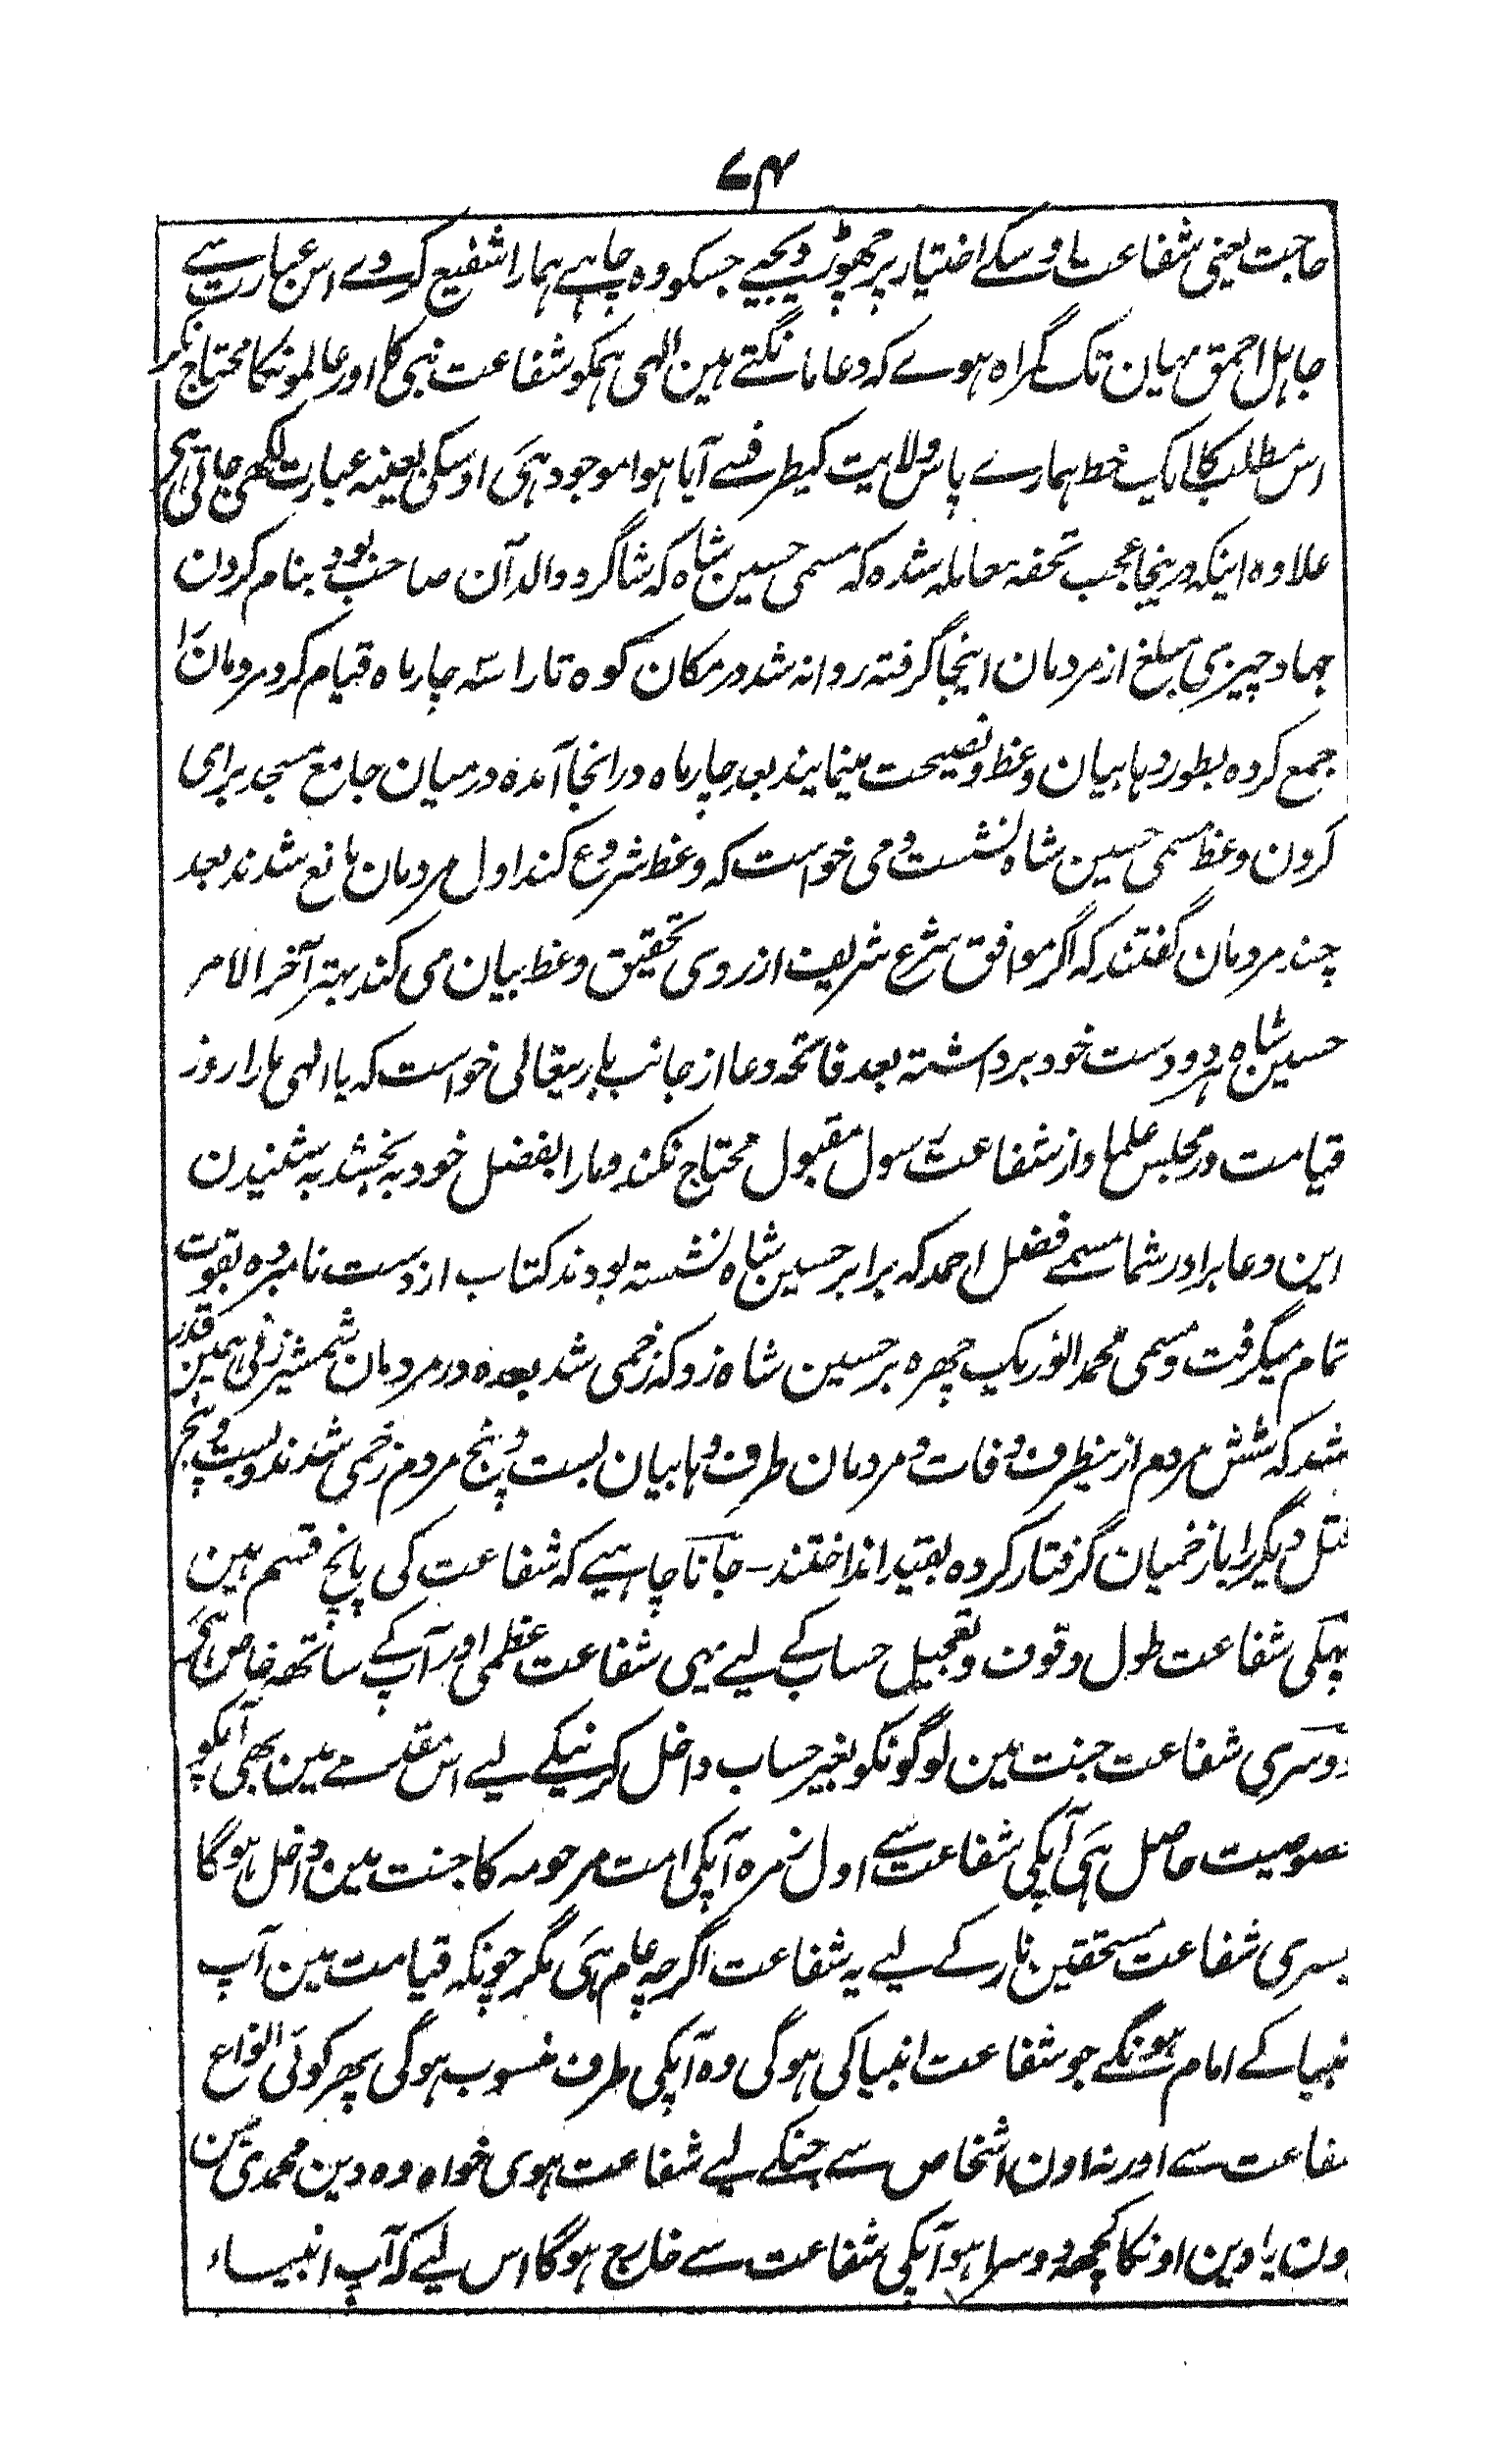 ۷۴
حاجت یعنی شفاعت اوسکے اختیار پر چھوڑ دیجیے جسکو وہ چاہے ہمارا شفیع کر دے اس عبارت سے
جاہل احمق یہان تک گمراہ ہوے کہ دعا مانگتے ہین الہی ہمکو شفاعت نبی کا اور عالمونکا محتاج نکر
اس مطلب کا ایک خط ہمارے پاس ولایت کیطرفسے آیا ہوا موجود ہی اوسکی بعینہ عبارت لکھی جاتی ہی
علاوہ اینکہ درینجا عجب تحفہ معاملہ شدہ کہ مسمی حسین شاہ کہ شاگرد والد آن صاحب بود بنام کردن
جہاد چیزی مبلغ از مردمان اینجا گرفتہ روانہ شد در مکان کوہ تارا سہ چار ماہ قیام کرد مردمان را
جمع کردہ بطور وہابیان وعظ و نصیحت مینمایند بعد چار ماہ در انجا آمدہ درمیان جامع مسجد برای
کردن وعظ مسمی حسین شاہ نشست و می خواست کہ وعظ شروع کند اول مردمان مانع شدند بعد
چند مردمان گفتند کہ اگر موافق شرع شریف از روی تحقیق وعظ بیان می کند بہتر آخر الامر
حسین شاہ ہر دو دست خود برداشتہ بعد فاتحہ دعا از جانب باریتعالی خواست کہ یا الہی مارا روز
قیامت در مجلس علما و از شفاعت رسول مقبول محتاج نکند و مارا بفضل خود بہ بخشد بہ شنیدن
این دعا برادر شما مسمے فضل احمد کہ برابر حسین شاہ نشستہ بودند کتاب از دست نامبردہ بقوت
تمام میگرفت و مسمی محمد انور یک چھرہ بر حسین شاہ زد کہ زخمی شد بعدہ در مردمان شمشیر زنی ہمین قدر
شد کہ شش مردم از ینطرف وفات و مردمان طرف وہابیان بست و پنج مردم زخمی شدند و بست و پنج
قتل دیگر را با زخمیان گرفتار کردہ بقید انداختند - جاننا چاہیے کہ شفاعت کی پانچ قسم ہین
پہلی شفاعت طول وقوف و تعجیل حساب کے لیے یہی شفاعت عظمی اور آپ کے ساتھہ خاص ہی
دوسری شفاعت جنت مین لوگونکو بغیر حساب داخل کرنیکے لیے اس مقدمے مین بھی آپکو
خصوصیت حاصل ہی آپکی شفاعت سے اول زمرہ آپکی امت مرحومہ کا جنت مین داخل ہوگا
یسری شفاعت مستحقین نار کے لیے یہ شفاعت اگرچہ عام ہی مگر چونکہ قیامت مین آپ
نبیا کے امام ہونگے جو شفاعت انبیا کی ہوگی وہ آپکی طرف منسوب ہوگی پھر کوئی انواع
شفاعت سے اور نہ اون اشخاص سے جنکے لیے شفاعت ہوی خواہ وہ دین محمدی مین
ون یا دین اونکا کچھہ دوسرا ہو آپکی شفاعت سے خارج ہوگا اس لیے کہ آپ انبیاء